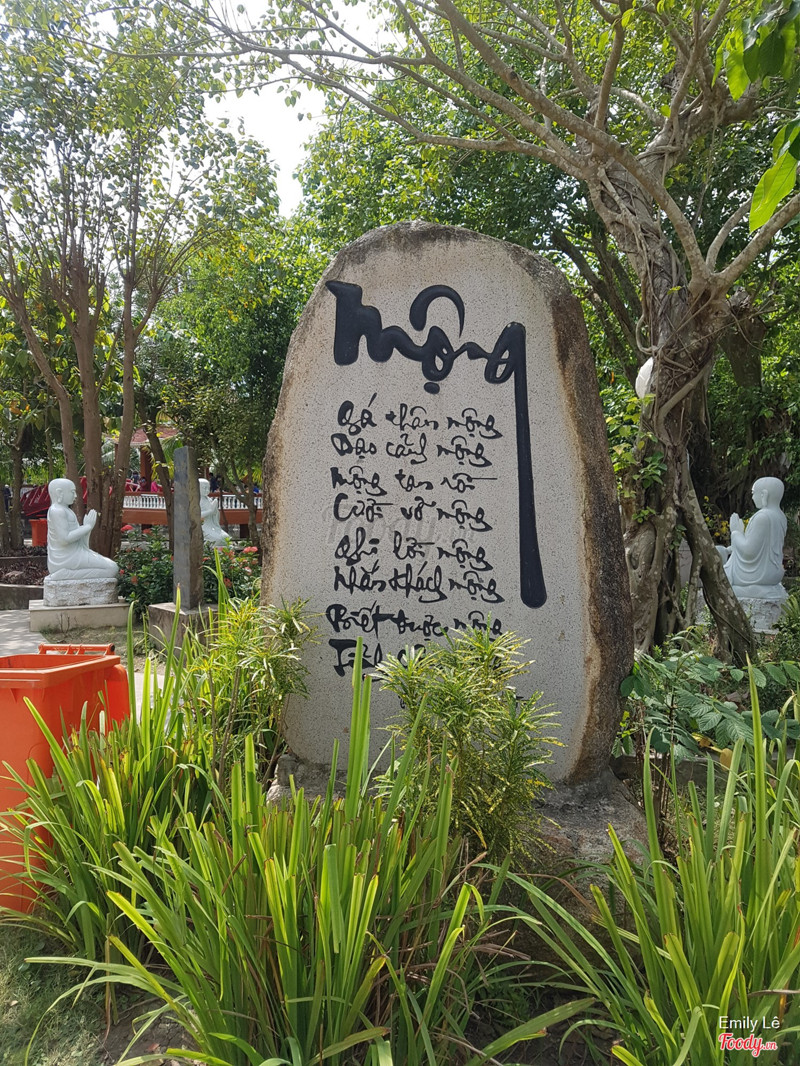 mộng
Gá thân mộng
Dạo cảnh mộng
mộng tan rồi
Cười vỡ mộng
Ghi lời mộng
Nhắn khách mộng
Biết được mộng
Tỉnh
Emily Lê
Foody.vn